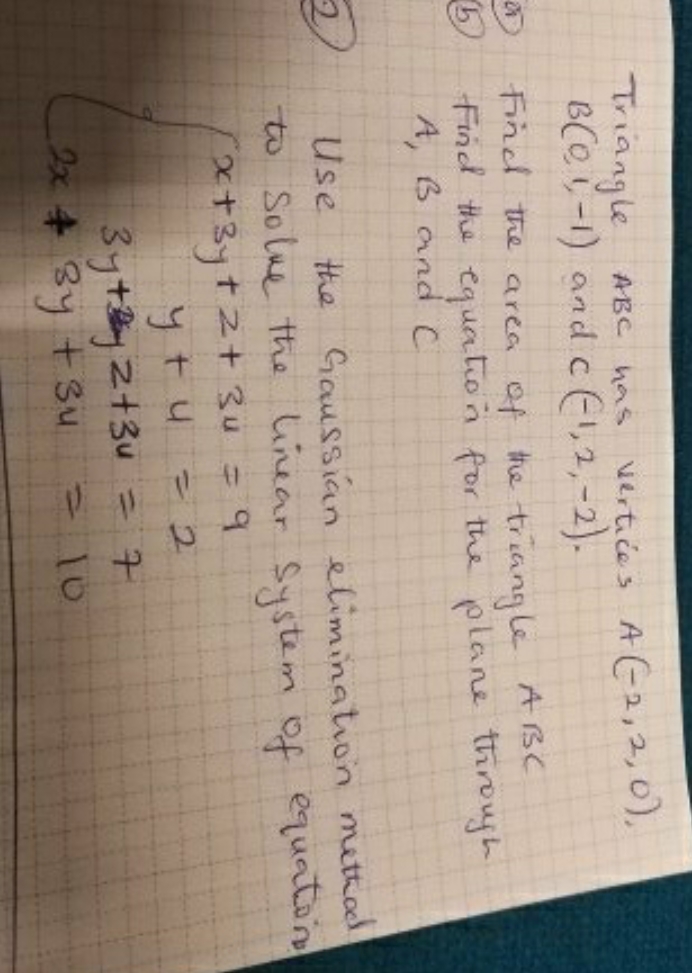 Triangle ABC has vertices A(-2, 2, 0),
B(0, 1, -1) and C(-1, 2, -2).
(a) Find the area of the triangle ABC
(b) Find the equation for the plane through
A, B and C
(2) Use the Gaussian elimination method
to Solve the linear System of equation
x + 3y + z + 3u = 9
y + u = 2
3y + z + 3u = 7
2x + 3y + 3u = 10